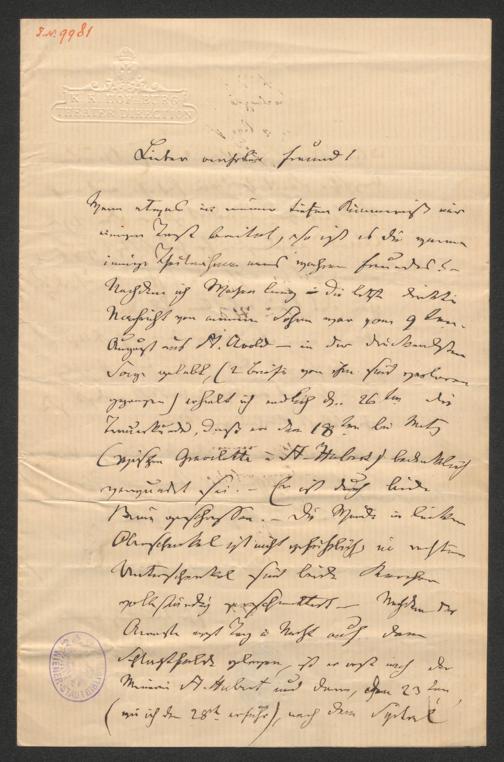 I.N. 9981
K. K. HOF-BURG
THEATER DIRECTION
Lieber verehrter Freund!
Wenn etwas in meiner tiefen Kümmerniß mir
einigen Trost bereitet, so ist es die warme
innige Theilnahme eines wahren Freundes! –
Nachdem ich Wochen lang – die letzte direkte
Nachricht von meinem Sohne war vom 9ten
August aus St. Avold – in der drückendsten
Sorge gelebt, (2 Briefe von ihm sind verloren
gegangen) erhielt ich endlich d. 26ten die
Trauerkunde, daß er den 18ten bei Metz
(zwischen Gravelotte u St Hubert) bedenklich
verwundet sei. – Er ist durch beide
Beine geschossen. – Die Wunde im linken
Oberschenkel ist nicht gefährlich, im rechten
Unterschenkel sind beide Knochen
vollständig zerschmettert – Nachdem der
Ärmste erst Tag u Nacht auf dem
Schlachtfelde gelegen, ist er erst nach der
St Hubert und dann, den 23ten
(wie ich den 28ten erfuhr), nach dem Spital
WIENER STADT